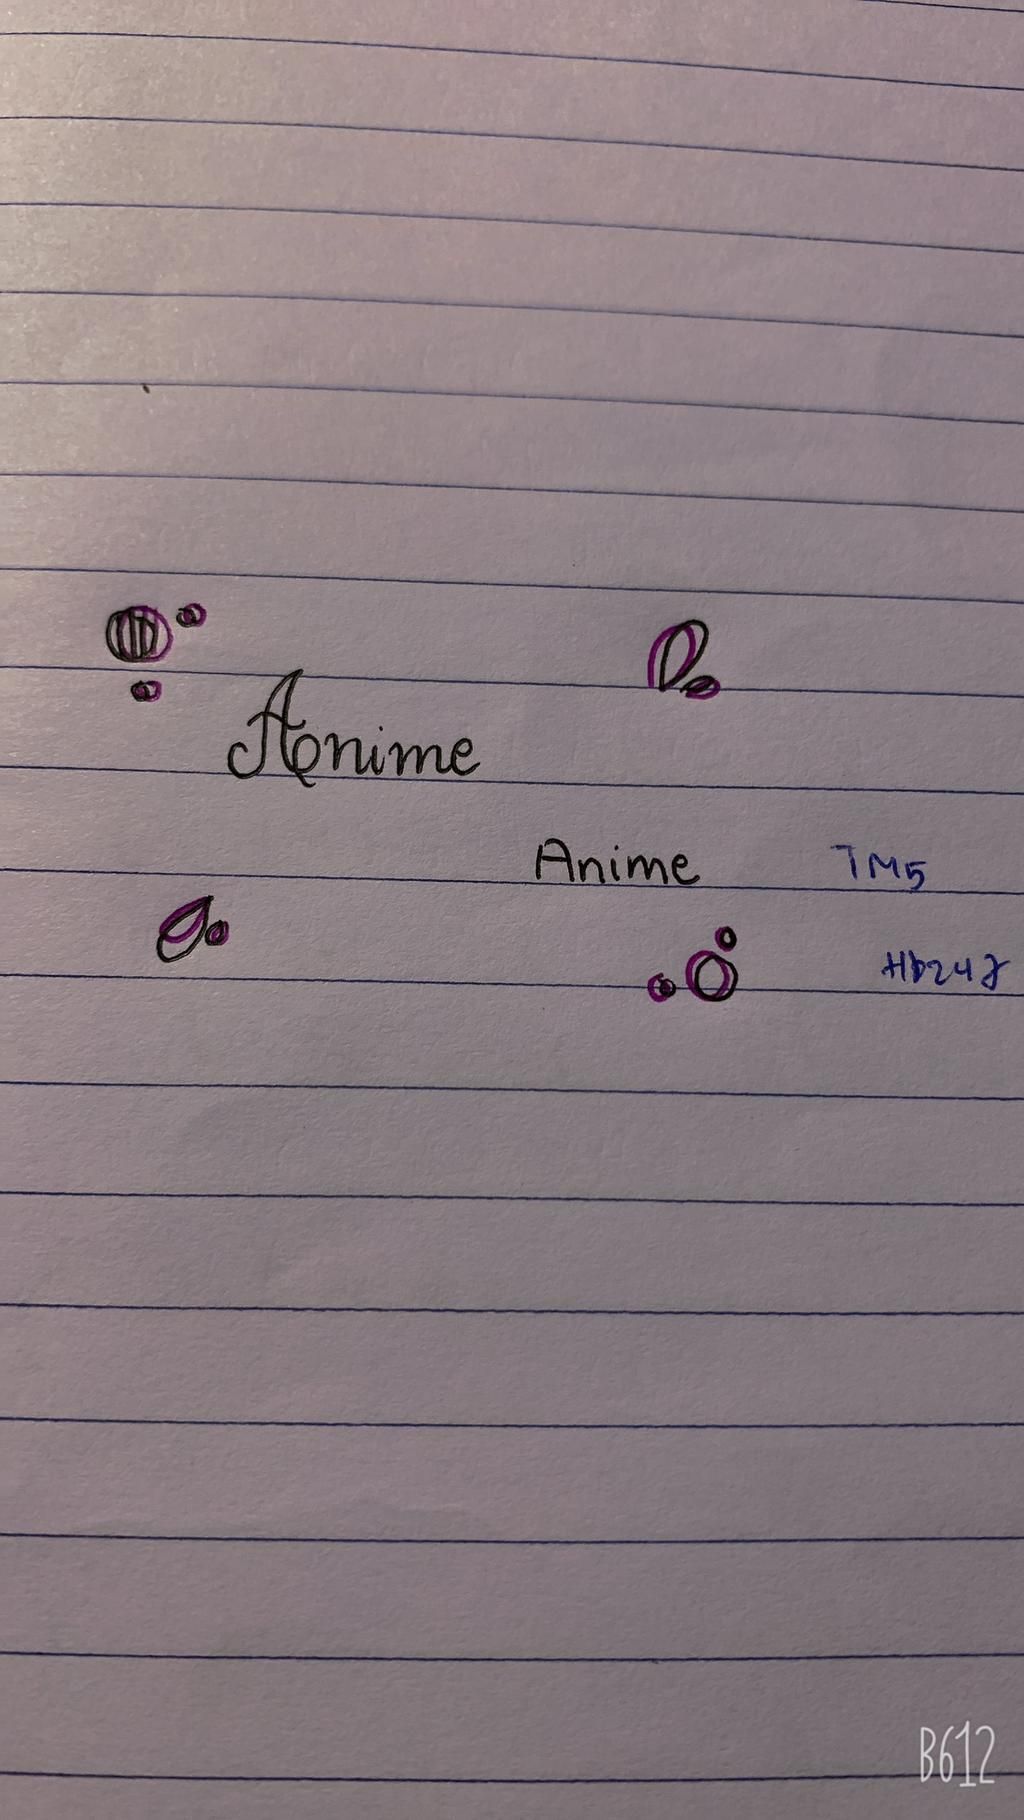 Anime
Anime TM5
B612